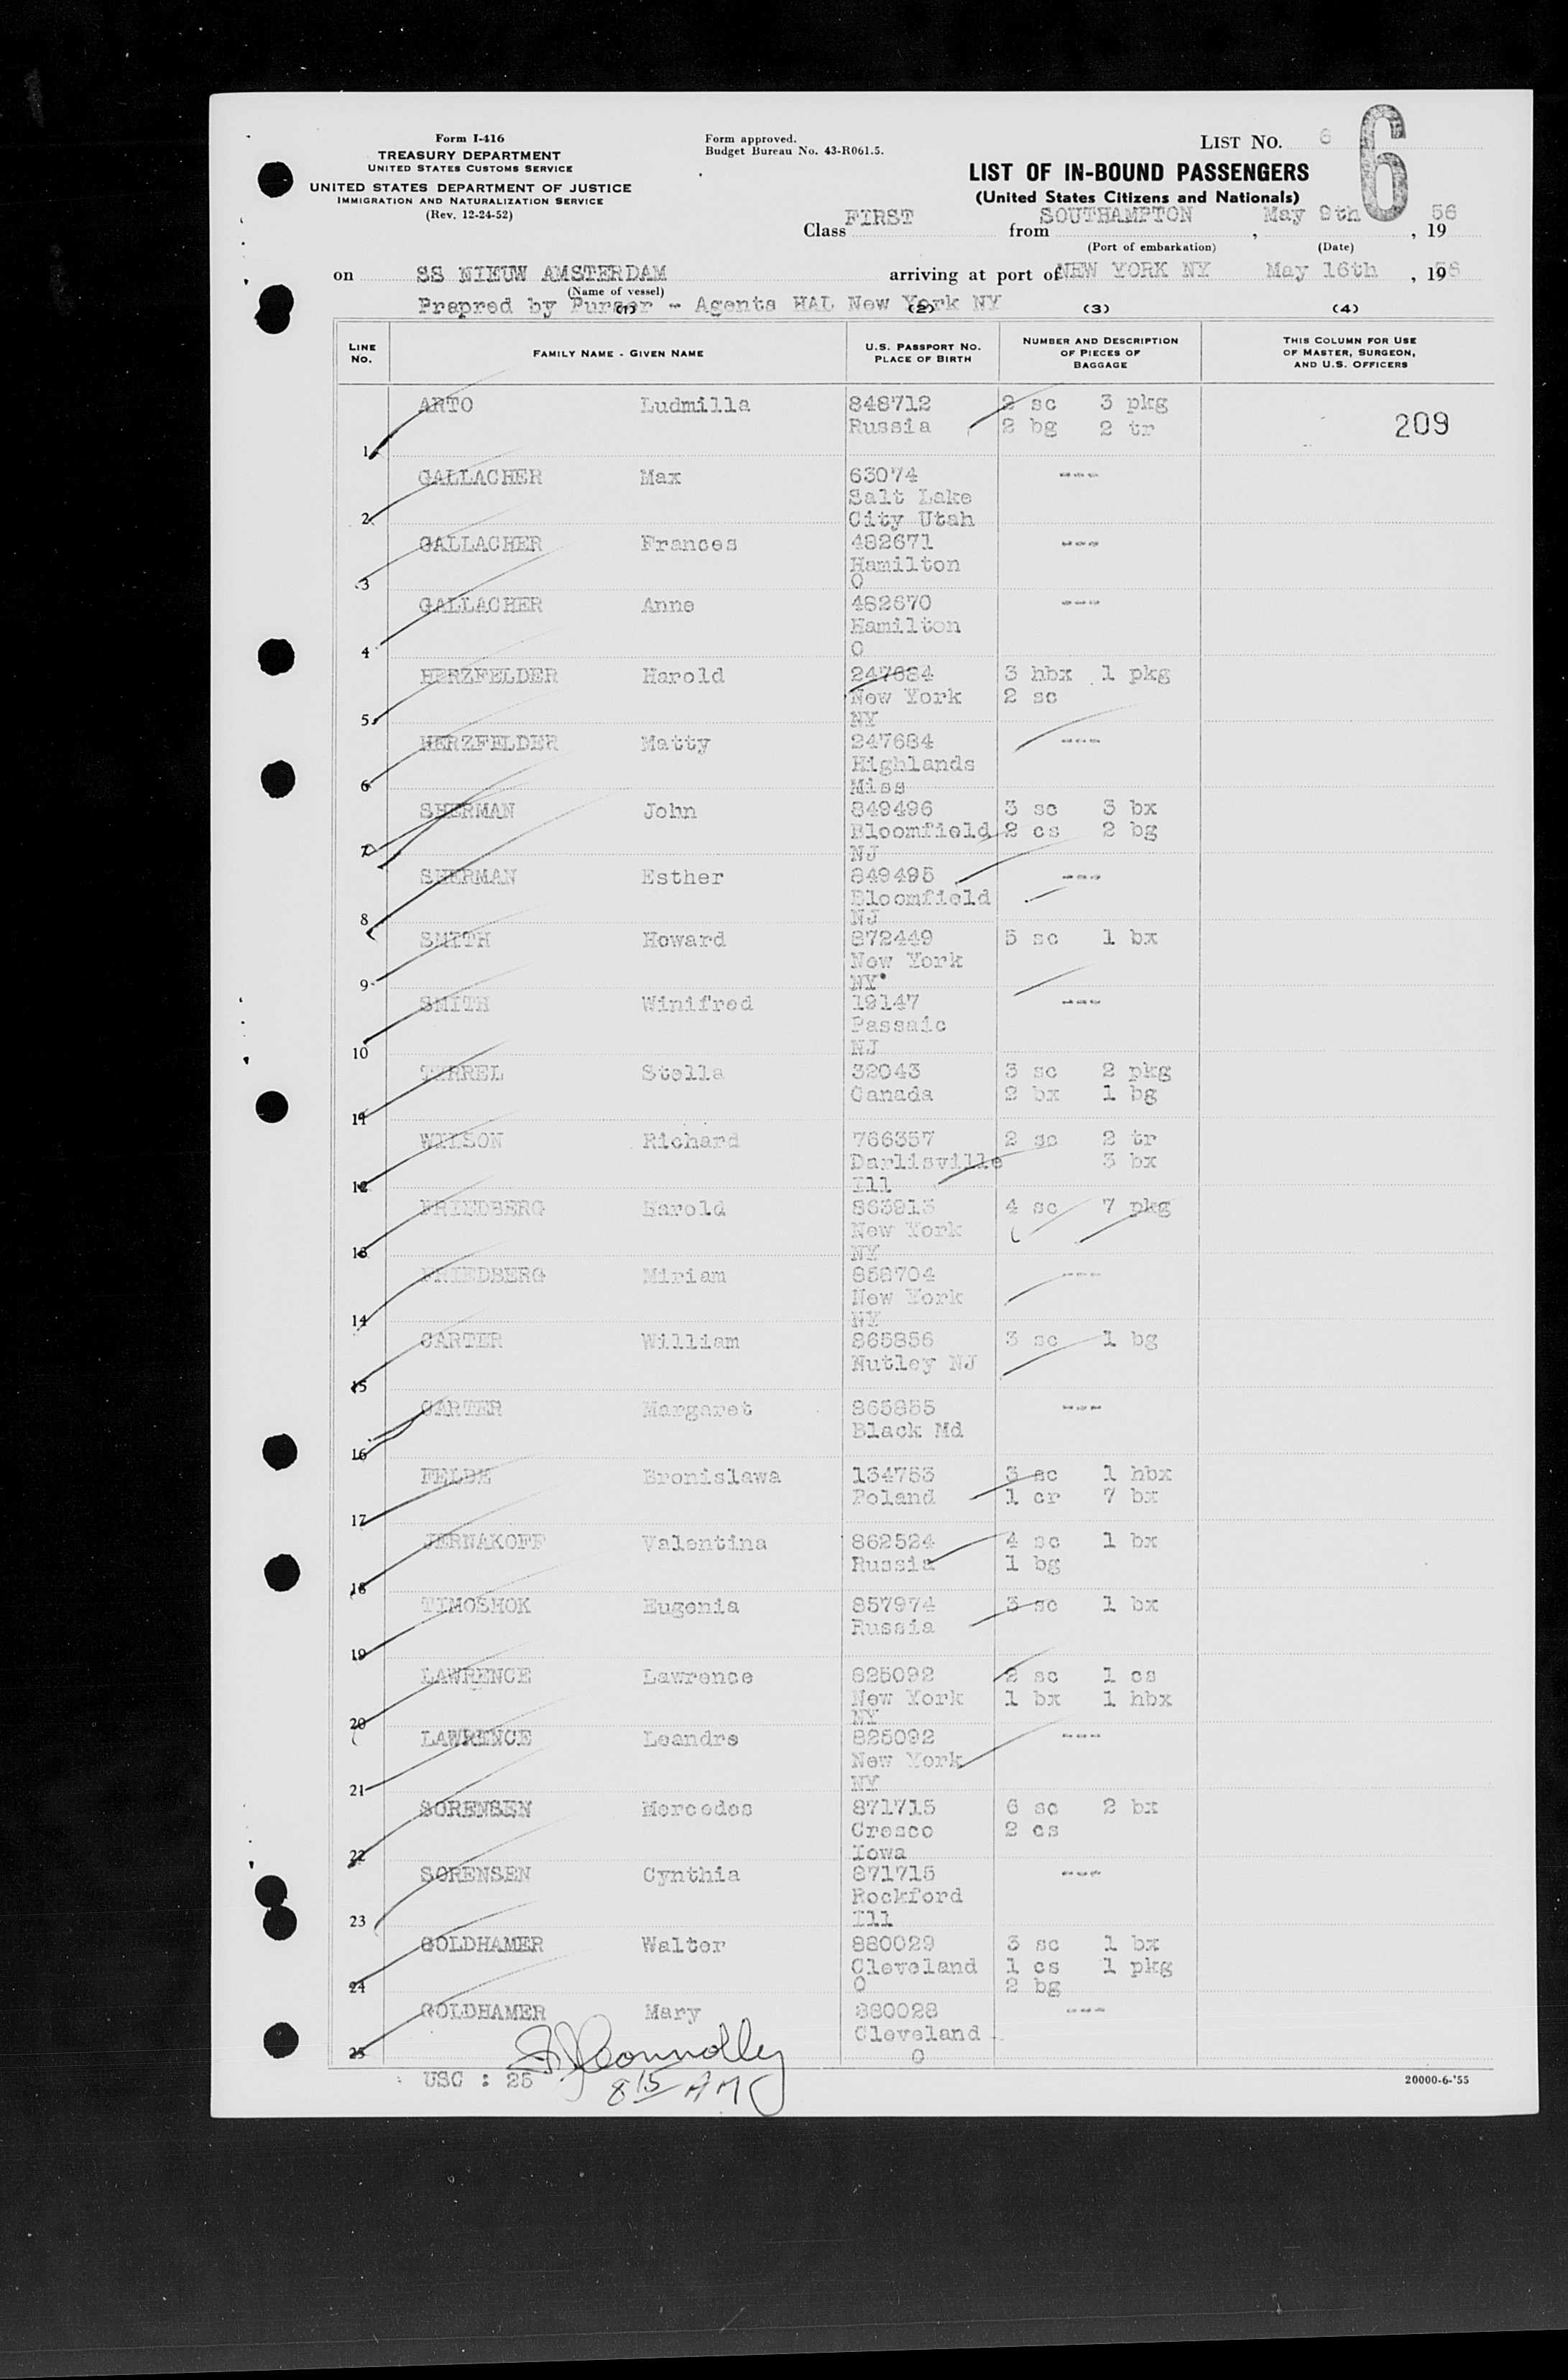 Form I-416
TREASURY DEPARTMENT
UNITED STATES CUSTOMS SERVICE
UNITED STATES DEPARTMENT OF JUSTICE
IMMIGRATION AND NATURALIZATION SERVICE
(Rev. 12-24-52)
Form approved.
Budget Bureau No. 43-R061.5.
LIST NO. 6
6
LIST OF IN-BOUND PASSENGERS
(United States Citizens and Nationals)
Class FIRST from SOUTHAMPTON, May 9th, 1956
(Port of embarkation) (Date)
on SS NIEUW AMSTERDAM arriving at port of NEW YORK NY May 16th, 1956
(Name of vessel)
Prepred by Purser - Agents HAL New York NY
(1) (2) (3) (4)
LINE NO. FAMILY NAME - GIVEN NAME U.S. PASSPORT NO. PLACE OF BIRTH NUMBER AND DESCRIPTION OF PIECES OF BAGGAGE THIS COLUMN FOR USE OF MASTER, SURGEON, AND U.S. OFFICERS
ARTO Ludmilla 848712 2 sc 3 pkg
Russia 2 bg 2 tr 209
1
GALLACHER Max 63074 ---
Salt Lake
2 City Utah
GALLACHER Frances 482671 ---
Hamilton
3 O
GALLACHER Anne 482670 ---
Hamilton
4 O
HERZFELDER Harold 247684 3 hbx 1 pkg
New York 2 sc
5 NY
HERZFELDER Matty 247684 ---
Highlands
6 Miss
SHERMAN John 849496 3 sc 3 bx
Bloomfield 2 cs 2 bg
7 NJ
SHERMAN Esther 849495 ---
Bloomfield
8 NJ
SMITH Howard 872449 5 sc 1 bx
New York
9 NY
SMITH Winifred 19147 ---
Passaic
10 NJ
TERREL Stella 32043 3 sc 2 pkg
Canada 2 bx 1 bg
11
WILSON Richard 766357 2 sc 2 tr
Darlisville 3 bx
12 Ill
FRIEDBERG Harold 863913 4 sc 7 pkg
New York
13 NY
FRIEDBERG Miriam 858704 ---
New York
14 NY
CARTER William 865856 3 sc 1 bg
Nutley NJ
15
CARTER Margaret 865855 ---
Black Md
16
Bronislawa 134753 3 sc 1 hbx
Poland 1 cr 7 bx
17
JERNAKOFF Valentina 862524 4 sc 1 bx
Russia 1 bg
18
TIMOSHOK Eugenia 857974 3 sc 1 bx
Russia
19
LAWRENCE Lawrence 825092 2 sc 1 cs
New York 1 bx 1 hbx
20 NY
LAWRENCE Leandre 825092 ---
New York
21 NY
SORENSEN Mercedes 871715 6 sc 2 bx
Cresco 2 cs
22 Iowa
SORENSEN Cynthia 871715 ---
Rockford
23 Ill
GOLDHAMER Walter 880029 3 sc 1 bx
Cleveland 1 cs 1 pkg
24 O 2 bg
GOLDHAMER Mary 880028 ---
Cleveland
25 O
Connolly
USC : 25 8 15 AM
20000-6-'55